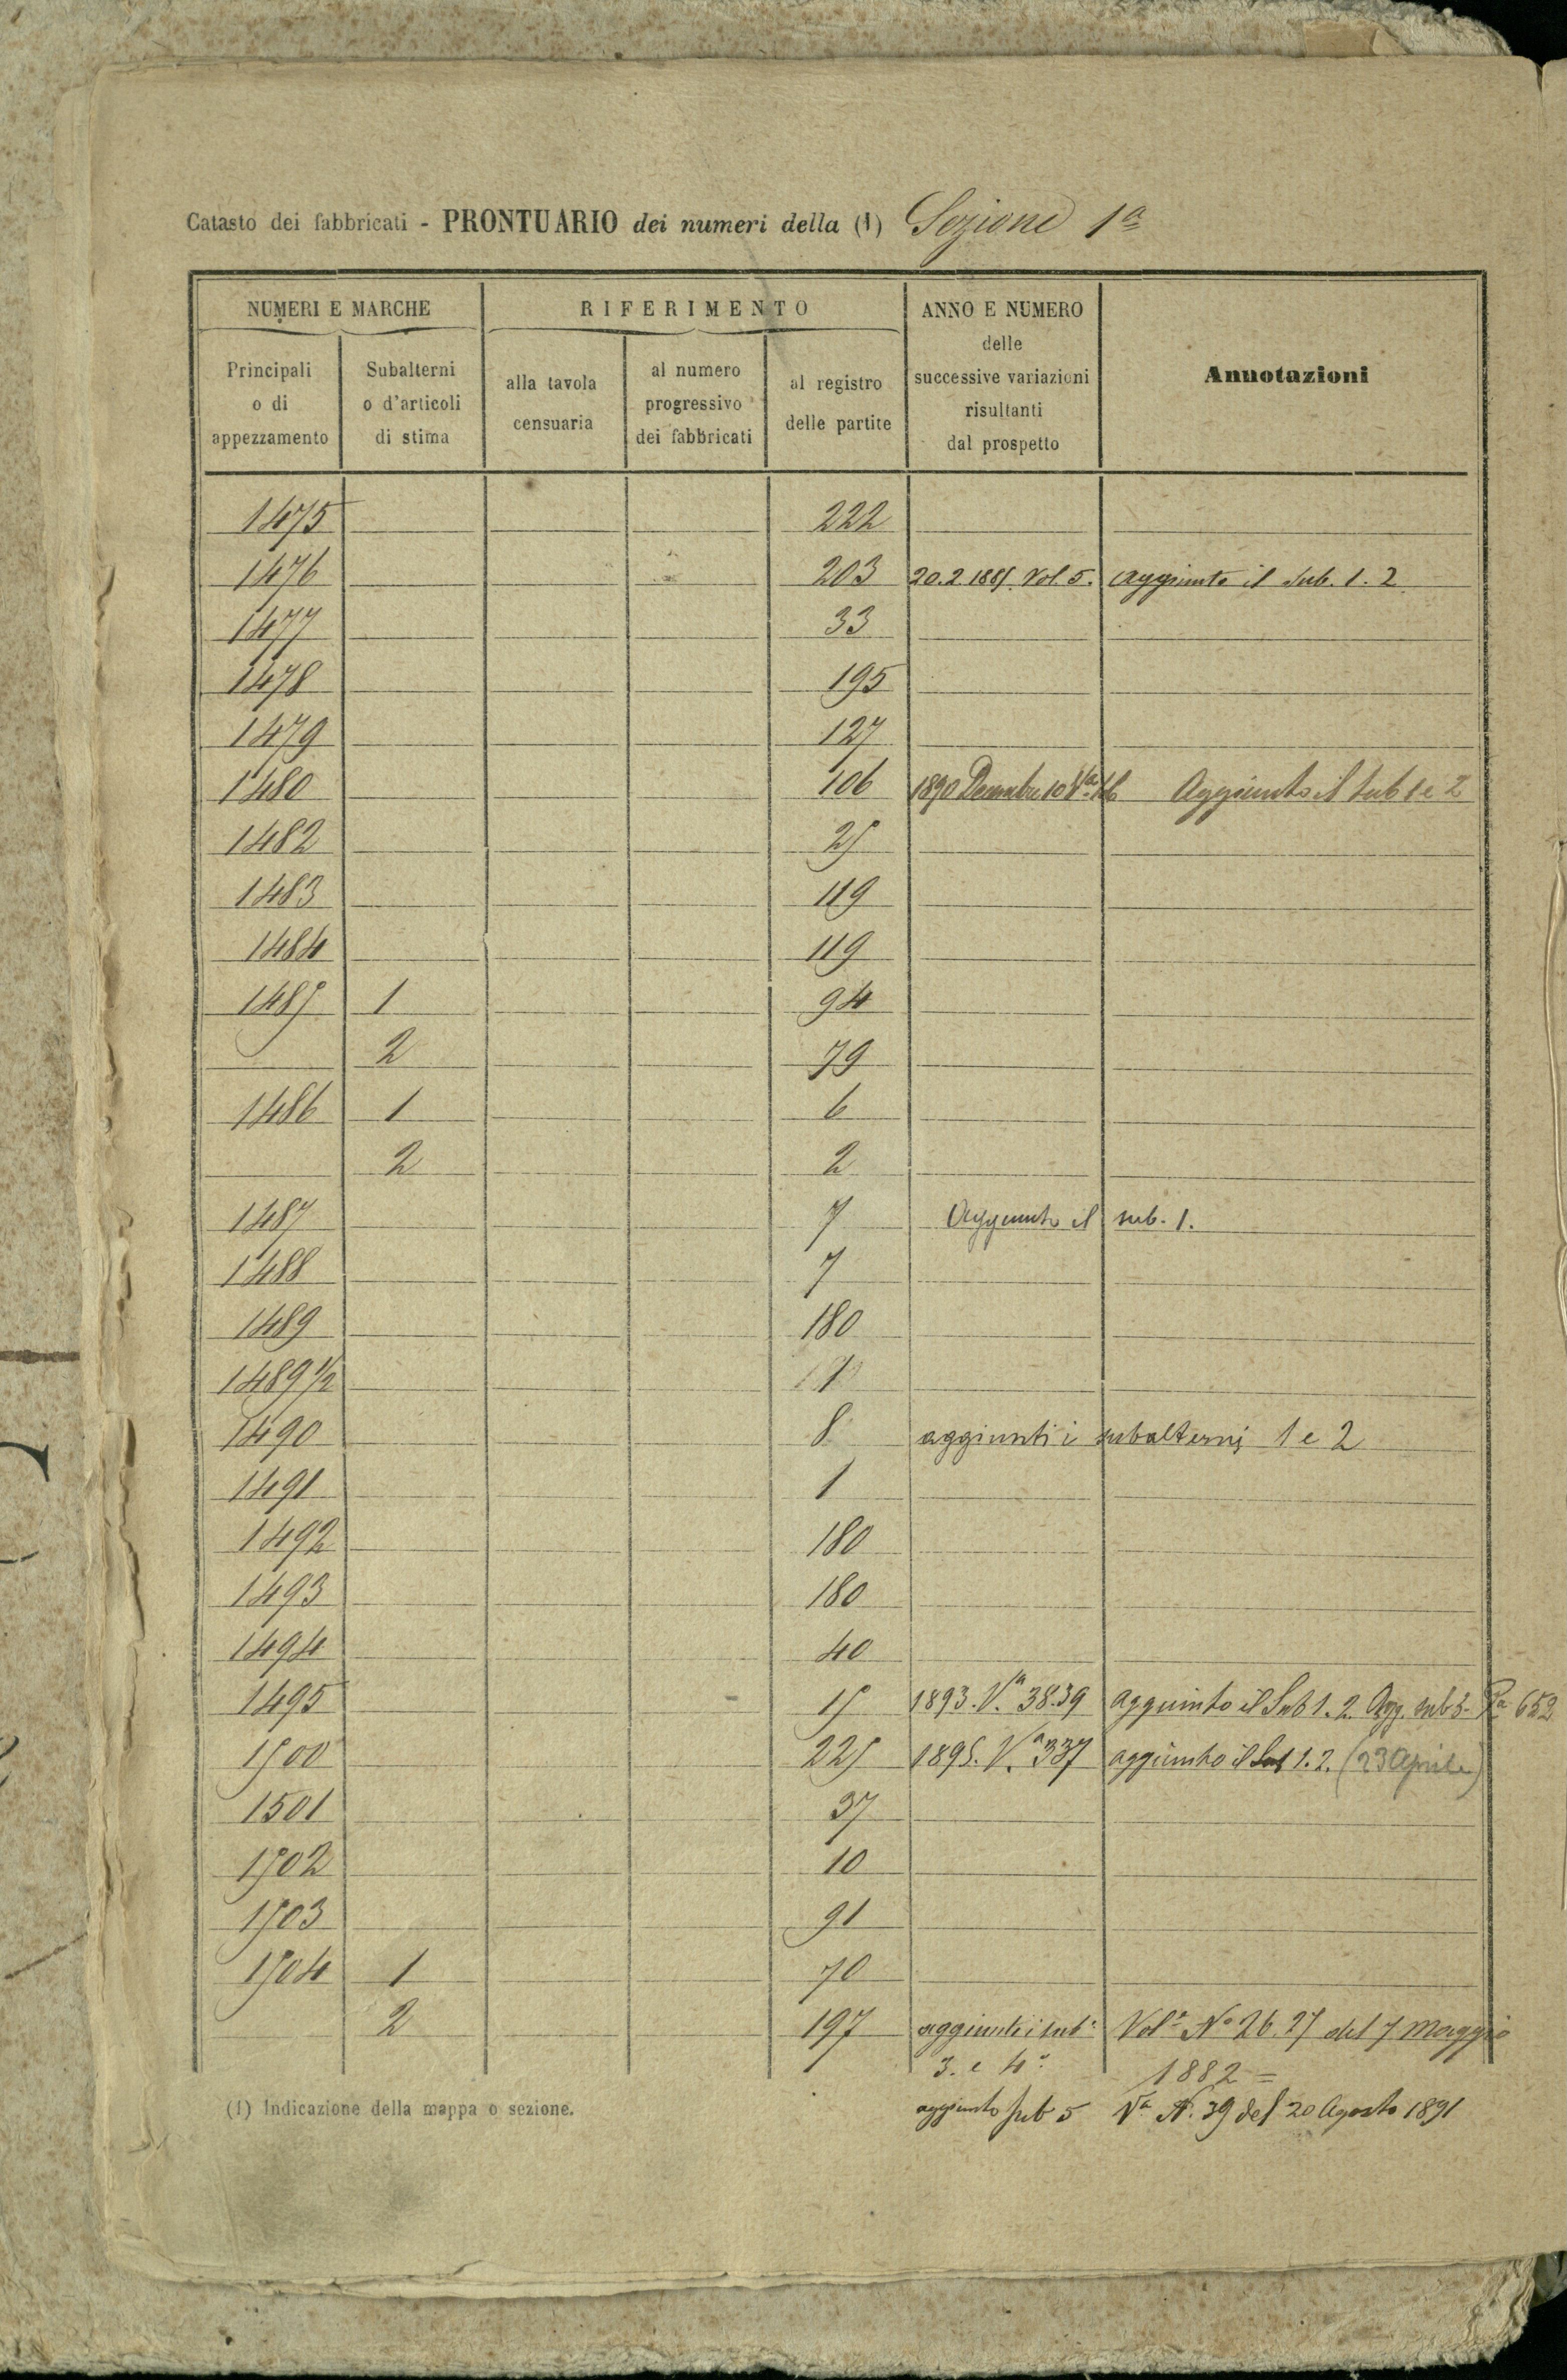 Catasto dei fabbricati - PRONTUARIO dei numeri della (1) Sezione 1a
NUMERI E MARCHE
RIFERIMENTO
ANNO E NUMERO
delle
successive variazioni
risultanti
dal prospetto
Annotazioni
Principali
o di
appezzamento
Subalterni
o d'articoli
di stima
alla tavola
censuaria
al numero
progressivo
dei fabbricati
al registro
delle partite
1475 222
1476 203 20.2 1885. Vol. 5. Aggiunto il Sub. 1. 2
1477 33
1478 195
1479 127
1480 106 1890 Decembre 10 Va Aggiunto il Sub 1 e 2
1482 25
1483 119
1484 119
1485 1 94
2 79
1486 1 6
2 2
1487 7 Aggiunto il sub. 1.
1488 7
1489 180
1489 1/2
1490 8 aggiunti i subalterni 1 e 2
1491 1
1492 180
1493 180
1494 40
1495 15 1893. Va. 38.39 aggiunto il Sub 1. 2. Agg. sub 3. Pa 652
1500 225 1895. Va. 337 aggiunto il Sub 1. 2. (23 Aprile)
1501 37
1502 10
1503 91
1504 1 70
2 197 aggiunti i sub. Vola No 26. 27 del 7 Maggio
3. e 4o. 1882 =
aggiunto sub 5 Va N. 39 del 20 Agosto 1891
(1) Indicazione della mappa o sezione.